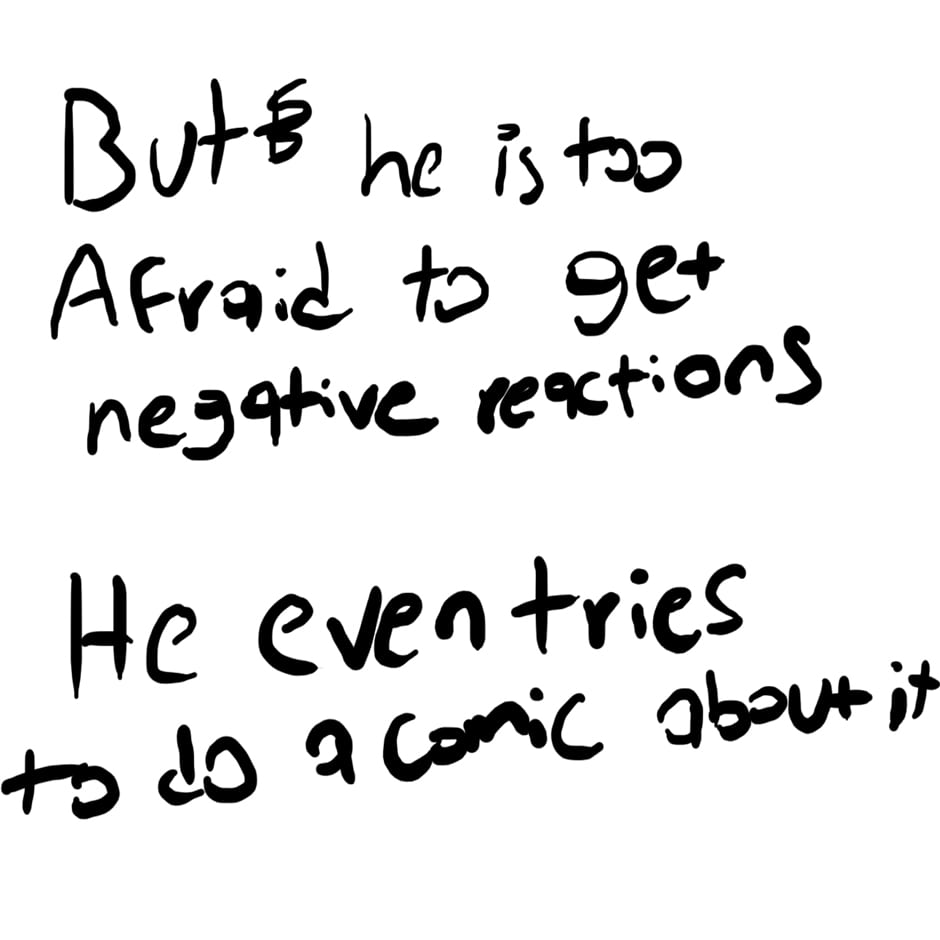 But he is too
Afraid to get
negative reactions
He even tries
to do a comic about it